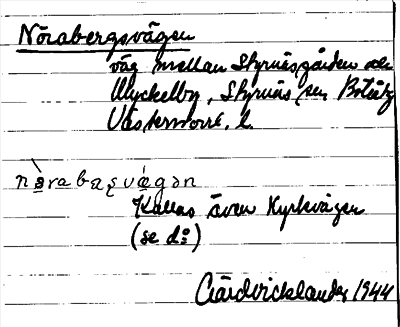 Nörabergsvägen
väg mellan Styrnäsgården och
Myckelby, Styrnäs sn, Boteå tg
Västernorrl. l.
nὰrabæʂvǽgən
Kallas även Kyrkvägen
(se d:o)
Gärd Vicklander 1944